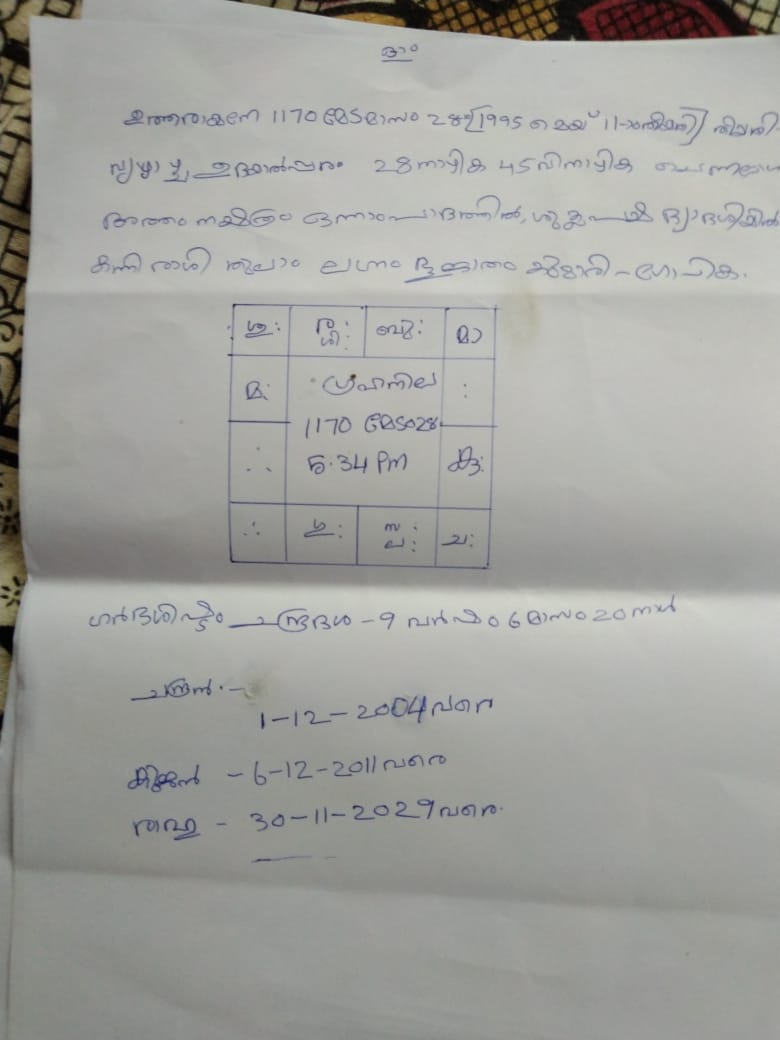 ഓം
ഉത്തരായനേ 1170 മേടമാസം 28ന് (1995 മെയ് 11-ാംതീയതി)
വ്യാഴാഴ്ച ഉദയാൽപരം 28 നാഴിക 45 വിനാഴിക
അത്തം നക്ഷത്രം ഒന്നാംപാദത്തിൽ, ശുക്ലപക്ഷ ദ്വാദശിയിൽ
കന്നി രാശി തുലാം ലഗ്നം ഭൂജാതം കുമാരി - ഗോപിക.
ശു: ര: ശി: ബു: മാ
മ: ഗ്രഹനില :
1170 മേടം 28
5.34 PM കു:
ഗു: ല: ച:
ഗർഭശിഷ്ടം ചന്ദ്രദശ - 9 വർഷം 6 മാസം 20 നാൾ
ചന്ദ്രൻ. -
1-12-2004 വരെ
കുജൻ - 6-12-2011 വരെ
രാഹു - 30-11-2029 വരെ.